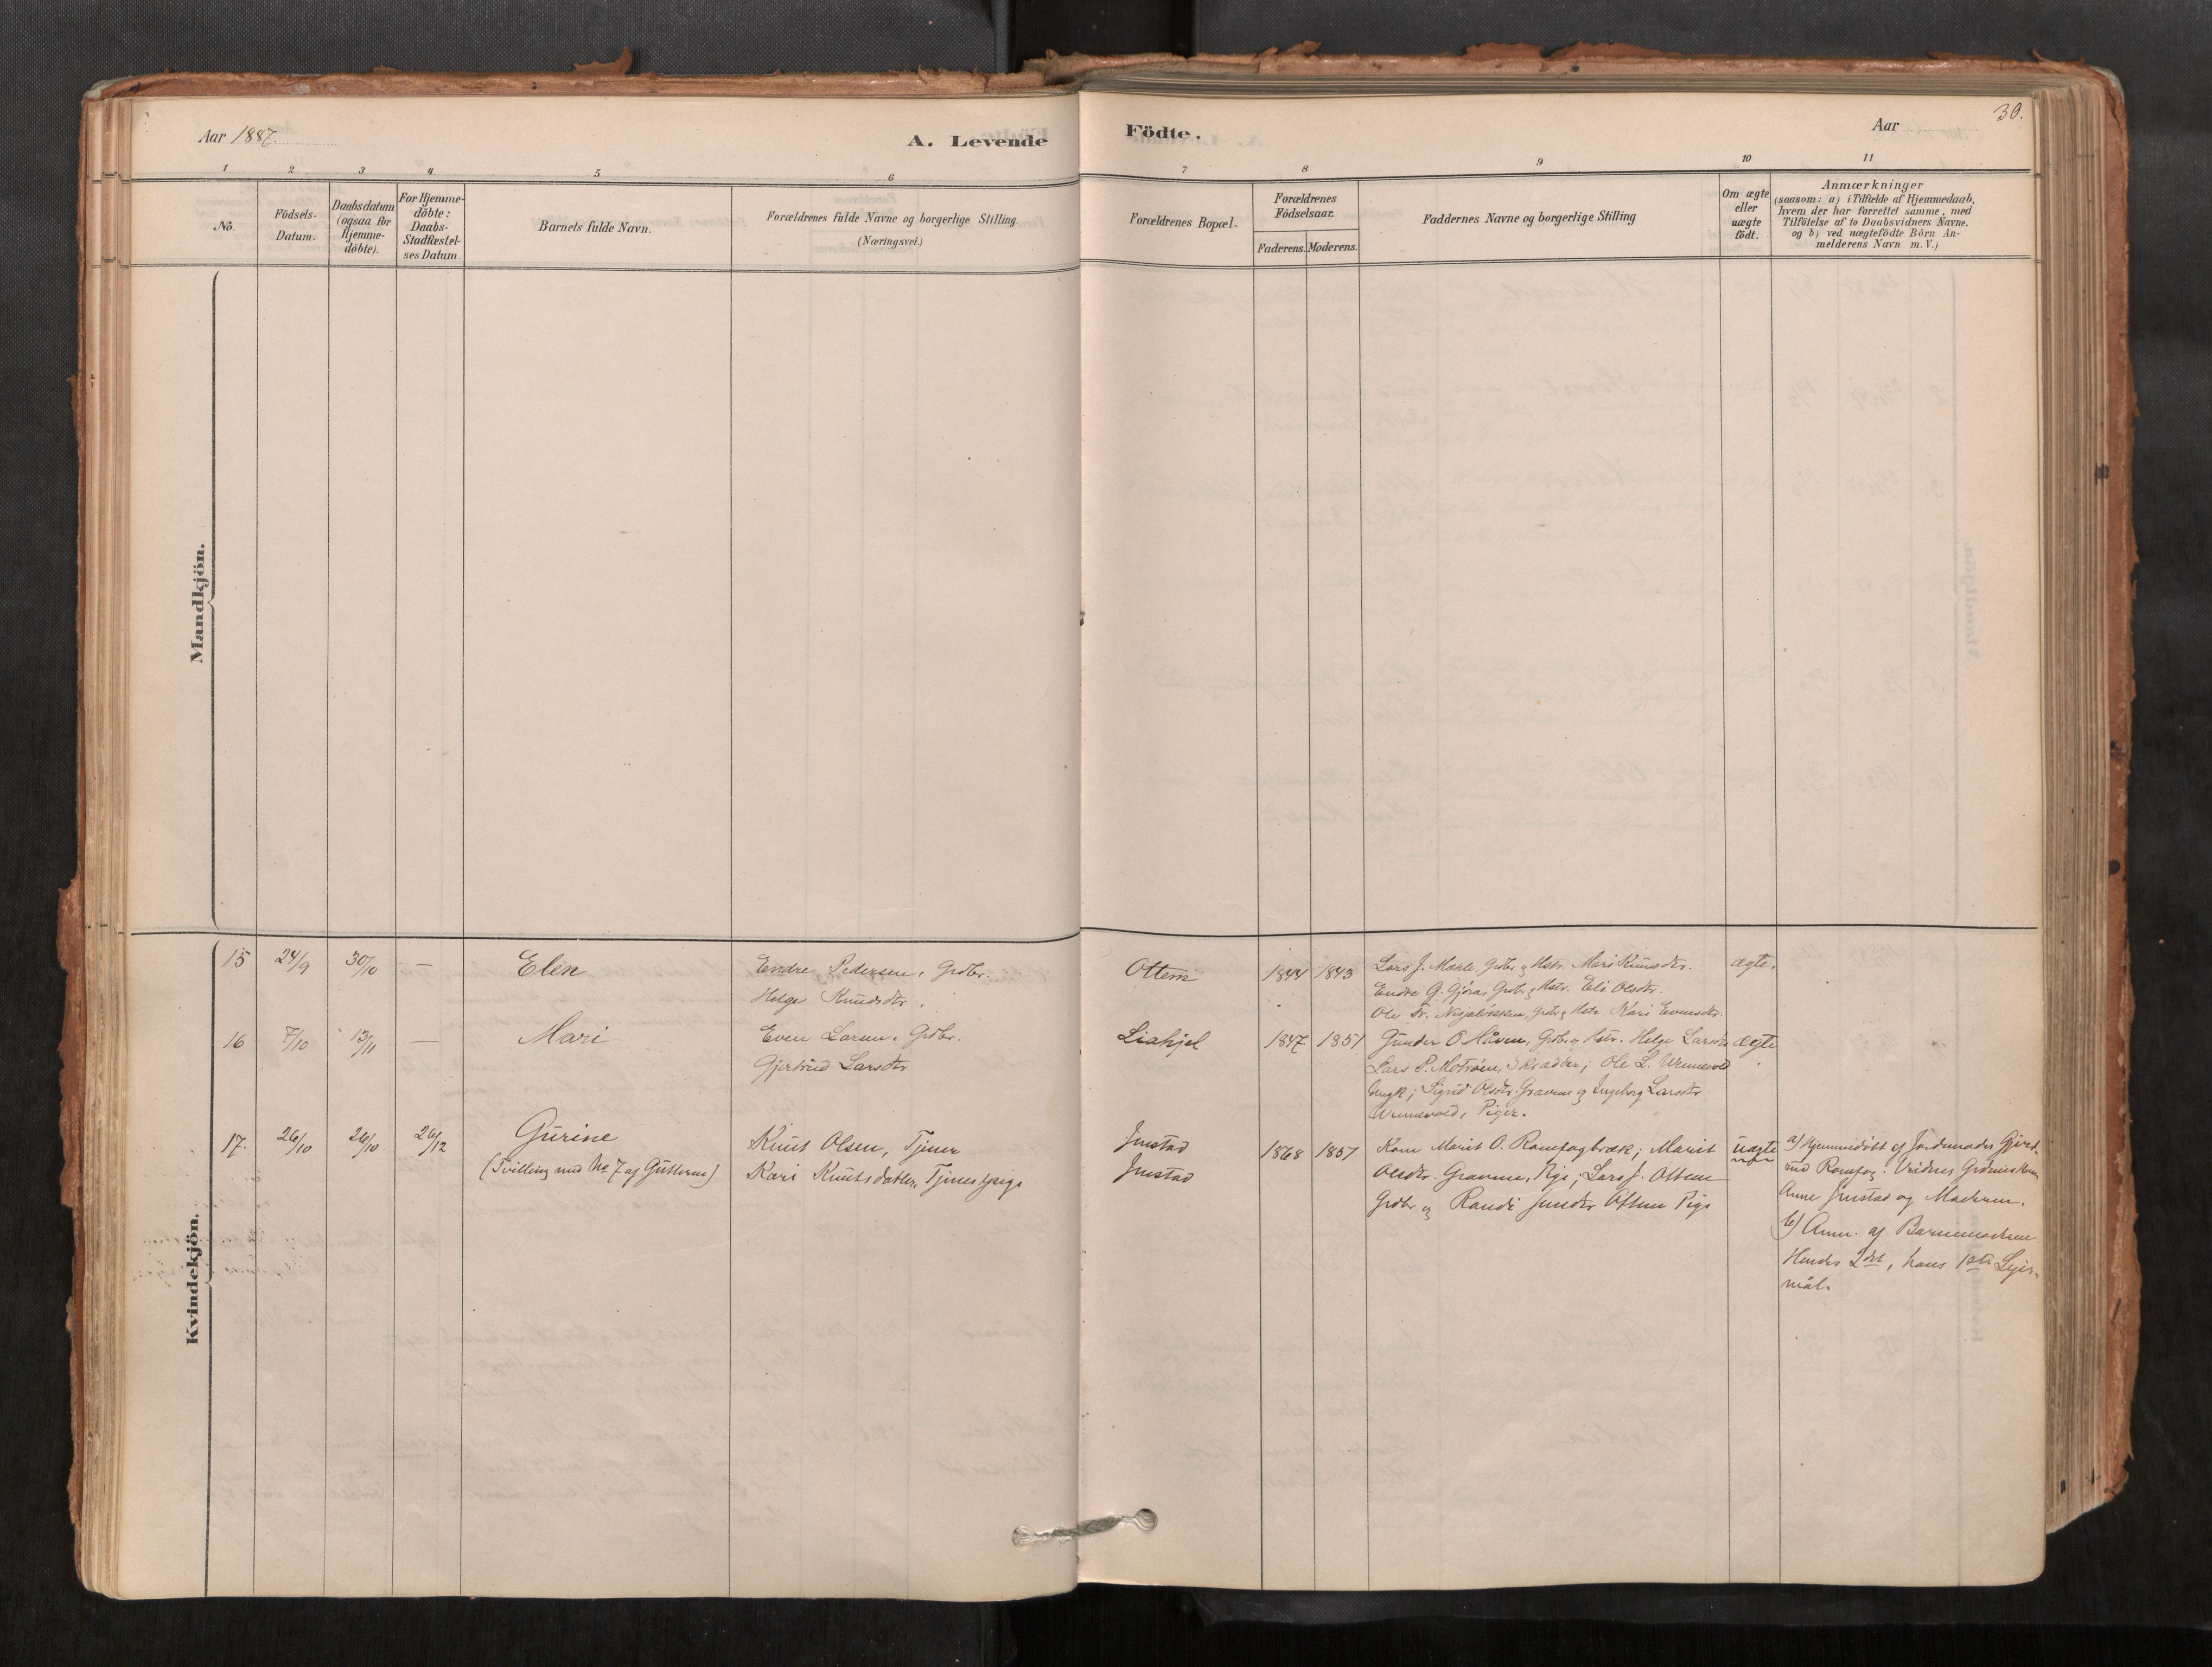 Aar 1887.
A. Levende
Födte.
Aar
30.
1
2
3
4
5
6
7
8
9
10
11
No.
Födsels-
Datum.
Daabsdatum
(ogsaa for
Hjemme-
döbte).
For Hjemme-
döbte:
Daabs-
Stadfæstel-
ses Datum.
Barnets fulde Navn.
Forældrenes fulde Navne og borgerlige Stilling
(Næringsvei.)
Forældrenes Bopæl.
Forældrenes
Födselsaar.
Faderens.
Moderens.
Faddernes Navne og borgerlige Stilling
Om ægte
eller
uægte
födt.
Anmærkninger
(saasom: a) i Tilfælde af Hjemmedaab,
hvem der har forrettet samme, med
Tilföielse af to Daabsvidners Navne,
og b) ved uægtefödte Börn An-
melderens Navn m. V.)
Mandkjön.
Kvindekjön.
15
24/9
30/10
—
Elen
Endre Pedersen, Grdbr.
Helge Knudsdtr.
Ottem
1844
1843
Lars J. Mæhle, Grdbr. og Hstr. Mari Knudsdtr.
Endre G. Gjöra, Grdbr. og Hstr. Eli Olsdtr.
Ole Gr. og Hstr. Kari Evensdtr.
ægte.
16
7/10
13/11
—
Mari
Even Larsen, Grdbr.
Gjertrud Larsdtr
Liahjel
1847
1851
Gunder O. Håven, Grdbr. og Hstr. Helge Larsdtr
Lars P. Motröen, Skrædder; Ole L.
Ungk; Sigrid Olsdtr. Gravem og Ingeborg Larsdtr
Piger.
ægte
17.
26/10
26/10
26/12
Gurine
(Tvilling med No 7 af Gutterne)
Knut Olsen, Tjener
Kari Knutsdatter, Tjenestpige
Jenstad
Jenstad
1868
1857
Kone Marit O. Romfogbræk; Marit
Olsdtr. Gravem, Pige; Lars J. Ottem
Grdbr og Randi Jensdtr Ottem Pige
uægte
a) Hjemmedöbt af Jordmoder Gjert-
rud Romfog. Vidner Grdmandskone
Anne Jenstad og Moderen.
b) Anm. af Barnemoderen.
Hendes 2det, hans 1ste Leier-
mål.